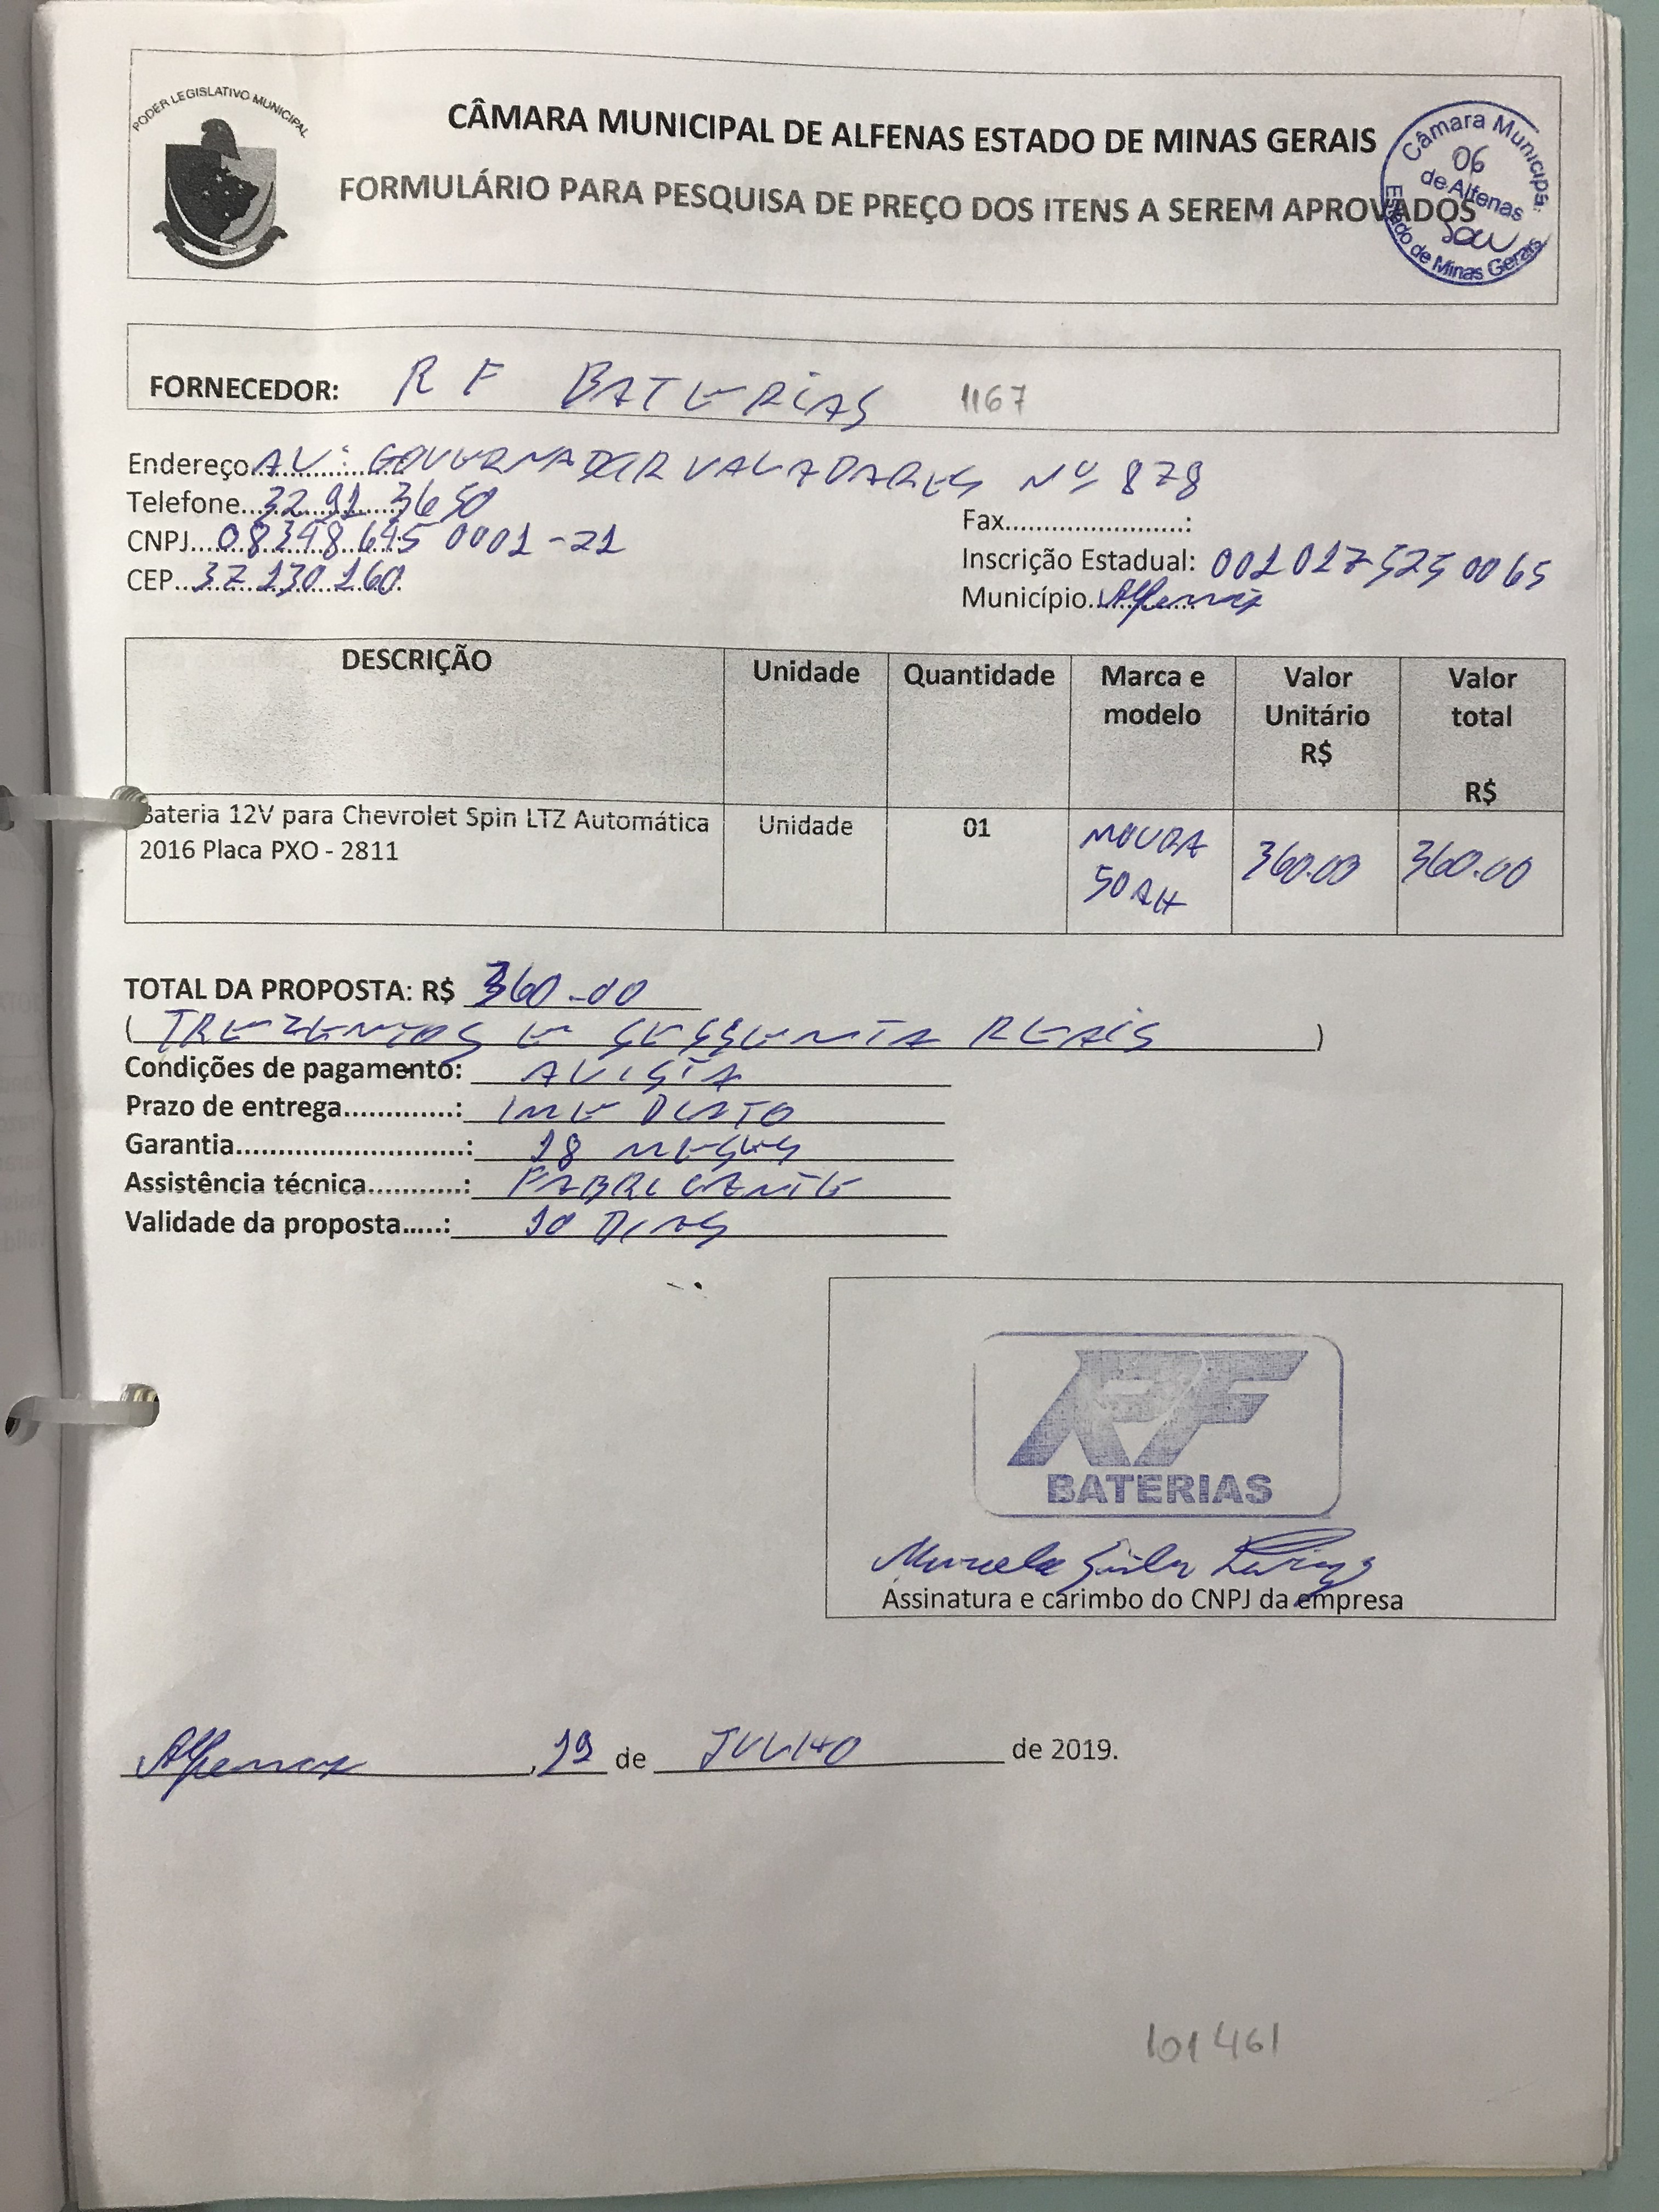 PODER LEGISLATIVO MUNICIPAL
CÂMARA MUNICIPAL DE ALFENAS ESTADO DE MINAS GERAIS
FORMULÁRIO PARA PESQUISA DE PREÇO DOS ITENS A SEREM APROVADOS
Câmara Municipal
06
de Alfenas
Estado de Minas Gerais
FORNECEDOR: RF BATERIAS 1167
Endereço AV: GOVERNADOR VALADARES Nº 878
Telefone...3291.3650
Fax.......................:
CNPJ...08348645 0001-21
Inscrição Estadual: 001017525 0065
CEP...37.130.160
Município...Alfenas
DESCRIÇÃO Unidade Quantidade Marca e modelo Valor Unitário R$ Valor total R$
Bateria 12V para Chevrolet Spin LTZ Automática Unidade 01 MOURA 360.00 360.00
2016 Placa PXO - 2811 50AH
TOTAL DA PROPOSTA: R$ 360.00
( TREZENTOS E SESSENTA REAIS )
Condições de pagamento: AVISTA
Prazo de entrega.............: IMEDIATO
Garantia...........................: 18 MESES
Assistência técnica...........: FABRICANTE
Validade da proposta.....: 10 DIAS
RF
BATERIAS
Assinatura e carimbo do CNPJ da empresa
Alfenas, 19 de JULHO de 2019.
101461